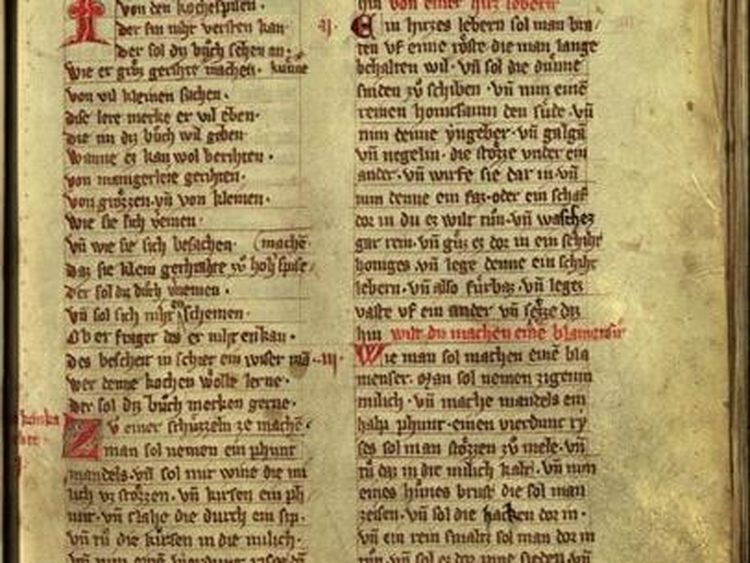 von den kochespisen.
der sin niht versten kan
der sol diz bůch sehen an.
wie er groz gerihte machen. kunne
von vil kleinen sachen.
dise lere merke er vil eben.
die im diz bůch wil geben
wanne ez kan wol berihten.
von manigerleie gerihten.
von grözzen vñ von kleinen.
wie sie sich vemen.
vñ wie sie sich besachen. (machē.
daz sie klein gerihtlihte zů hoh spise
der sol diz bůch vnemen.
vñ sol sich niht en schemen.
Ob er fraget des er niht enkan.
des bescheit in schier ein wiser man
wer denne kochen wölle lerne.
der sol diz bůch merken gerne.
Z v einer schüzzeln ze machē.
man sol nemen ein phunt
mandels. vñ sol mit wine die mi
lich vz stözzen. vñ kirsen ein ph
unt. vñ slahe die durch ein sip.
vñ tů die kirsen in die milich.
hin von einer hirz lebern
.ij. Ein hirzes lebern sol man bra
ten vf eime röste die man lange
behalten wil. vñ sol die dünne
sniden zů schiben. vñ nim einē
reinen honicsaum den süde. vñ
nim denne yngeber. vñ galgā
vñ negelin. die stözze vnder ein
ander. vñ wirfe sie dar in. vñ
nim denne ein faz. oder ein schaf
dor in du ez wilt tůn. vñ waschez
gar rein. vñ güz ez dor in ein schiht
honiges. vñ lege denne ein schiht
lebern. vñ also fürbaz. vñ legez
vaste vf ein ander vñ setze diz
hin wilt du machen eine blamensir
.iij. Wie man sol machen einē bla
menser. Man sol nemen zigenin
milich. vñ mache mandels ein
halp phunt. einen vierdunc ry
ses sol man stözzen zů mele. vñ
tů daz in die milich kalt. vñ nim
eines hůnes brust die sol man
zeisen. vñ sol die hacken dor in.
vñ ein rein smaltz sol man dor in
tůn. vñ sol ez dor inne sieden. vñ